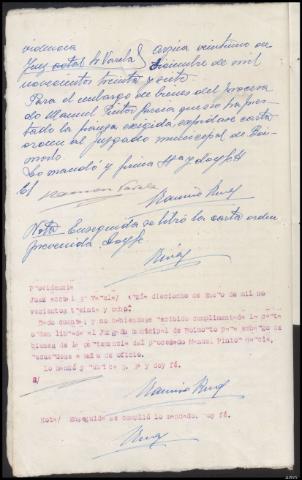 videncia
Juez actal. Sr Varela} Arzúa veintiuno de
diciembre de mil
novecientos treinta y siete
Para el embargo de bienes del procesa
do Manuel Pintos García que no ha pres
tado la fianza exigida, expídase carta
orden al juzgado municipal de Boi
morto
Lo mandó y firma Sª y doy fé
E/
Ramón Varela
Ramiro
Nota Enseguida se libró la carta orden
prevenida, doy fe.
Providencia
Juez actal Sr Varela/ Arzúa dieciocho de Enero de mil no
vecientos treinta y ocho.
Dado cuenta; y no habiéndose recibido cumplimentada la carta
orden librada al Juzgado municipal de Boimorto para embargo de
bienes de la pertenencia del procesado Manuel Pintos García,
recuérdese a medio de oficio.
Lo mandó y y doy fé.
E/
Ramiro
Nota/ Enseguida se cumplió lo mandado, doy fé.